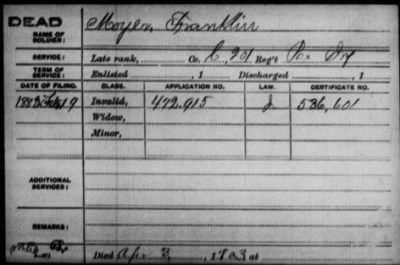 DEAD
NAME OF SOLDIER: Moyer, Franklin
SERVICE: Late rank, Co. C, 201 Reg't Pa Inf
TERM OF SERVICE: Enlisted , 1 Discharged , 1
DATE OF FILING. CLASS. APPLICATION NO. LAW. CERTIFICATE NO.
1883 19 Invalid, 472.915 536,601
Widow,
Minor,
ADDITIONAL SERVICES:
REMARKS:
Died Apr 3, 1903 at